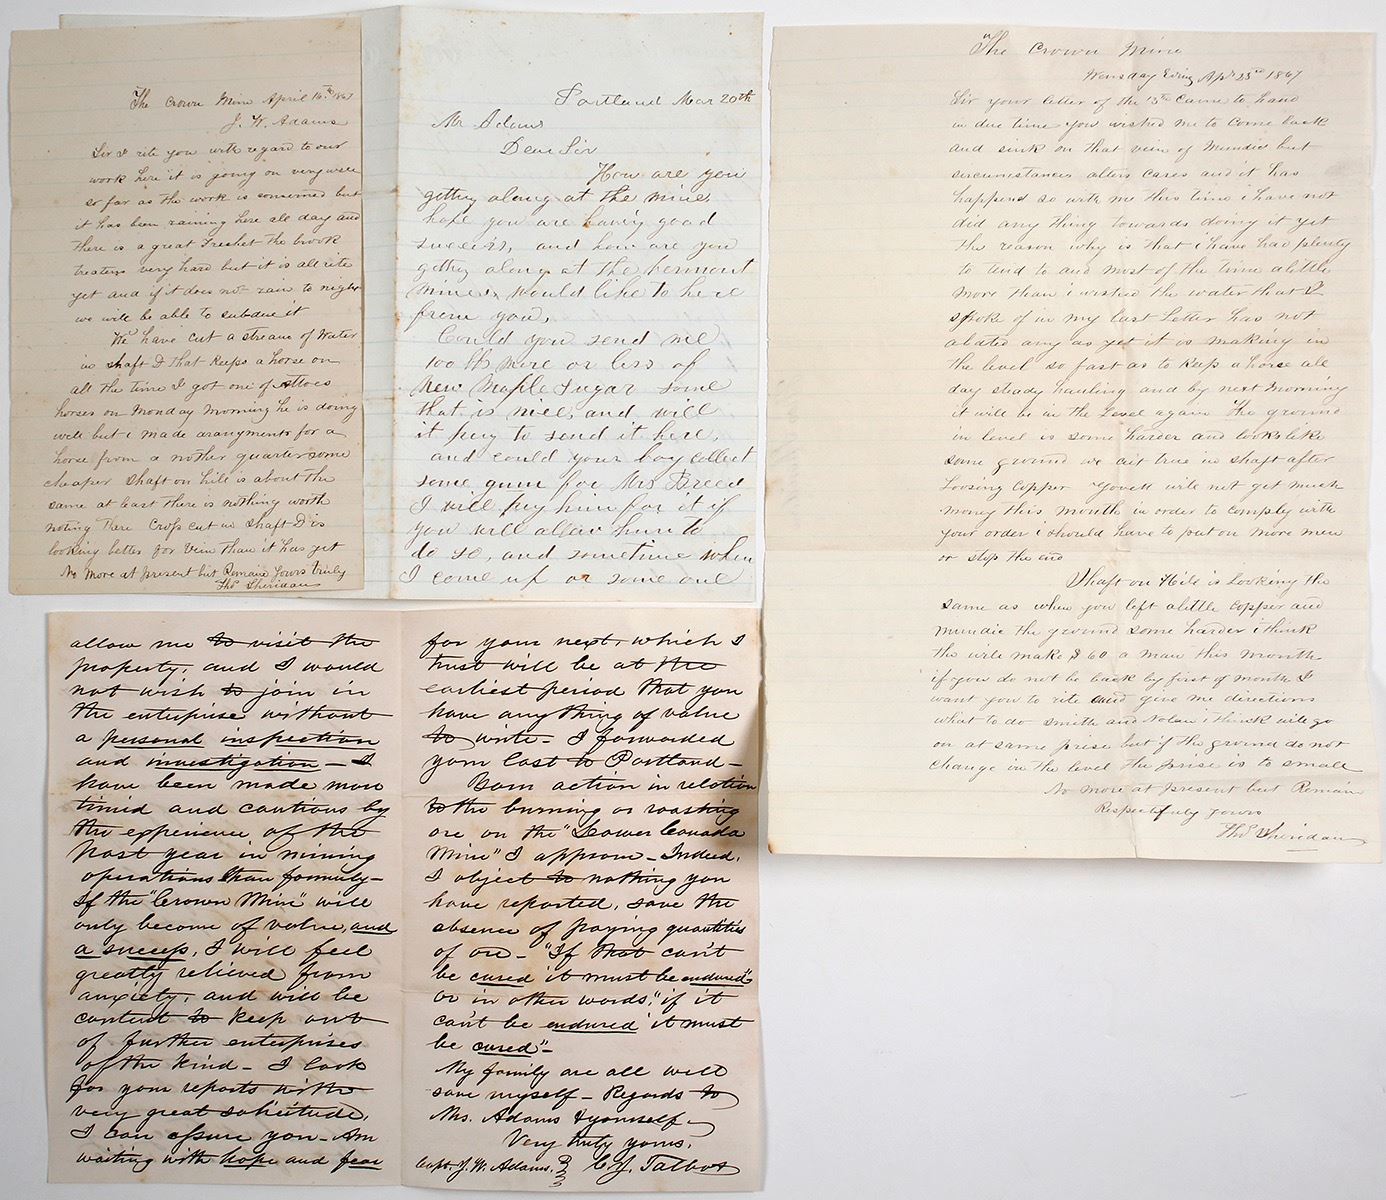 The Crown Mine April 16th 1867
J. W. Adams
Sir I rite you with regard to our
work here it is going on very well
so far as the work is conserned but
it has been raining here all day and
there is a great Freshet the brook
treatens very hard but it is all rite
yet and if it does not rain to night
we will be able to subdue it
We have cut a stream of Water
in shaft D that keeps a horse on
all the time I got one of
horses on Monday Morning he is doing
well but i made arangments for a
horse from a nother quarter some
cheaper shaft on hill is about the
same at least there is nothing worth
noting there Cross cut in Shaft D is
looking better for Vein than it has yet
No More at present but Remain Yours truly
Thos Sheridan
Portland Mar 20th
Mr Adams
Dear Sir
How are you
getting along at the mines
hope you are having good
success, and how are you
getting along at the vermont
mines, would like to here
from you,
Could you send me
100 lb more or less of
New Maple Sugar some
that is nice, and will
it pay to send it here,
and could your boy collect
some gum for Mrs Breed
I will pay him for it if
you will allow him to
do so, and sometime when
I come up or some one
The Crown Mine
Wensday Eving Apr 23rd 1867
Sir your letter of the Came to hand
in due time you wished me to Come back
and sink on that vein of Mundic but
circumstances alters cases and it has
happend so with me this time i have not
did any thing towards doing it yet
the reason why is that i have had plenty
to tend to and most of the time alittle
more than i wished the water that I
spoke of in my last letter has not
abated any as yet it is making in
the level so fast as to keep a horse all
day steady hauling and by next Morning
it will be in the Level again The ground
in level is some harder and looks like
some ground we cut true in shaft after
Loosing Copper Yowell will not get much
money this month in order to comply with
your order i should have to put on more men
or stop the end
Shaft on Hill is Looking the
same as when you left alittle Copper and
Mundic the ground some harder i think
the will make $60 a man this Month
if you do not be back by first of month I
want you to rite and give me directions
what to do Smith and Nolan i think will go
on at same prise but if the ground do not
change in the level the prise is to small
No more at present but Remain
Respectfuly yours
Thos Sheridan
allow me to visit the
property, and I would
not wish to join in
the enterprise without
a personal inspection
and investigation – I
have been made more
timid and cautious by
the experience of the
past year in mining
operations than formerly –
If the "Crown Mine" will
only become of value, and
a success, I will feel
greatly relieved from
anxiety, and will be
content to keep out
of further enterprises
of the kind – I look
for your reports with
very great solicitude,
I can assure you – Am
waiting with hope and fear
for your next, which I
trust will be at the
earliest period that you
have anything of value
to write – I forwarded
your last to Portland –
Your action in relation
to the burning or roasting
ore on the "Lower Canada
Mine" I approve – Indeed,
I object to nothing you
have reported, save the
absence of paying quantities
of ore – "If that can't
be cured it must be endured"
or in other words, "if it
can't be endured it must
be cured" –
My family are all well
save myself – Regards to
Mrs. Adams & yourself –
Very truly yours,
Capt. J. W. Adams. C. J. Talbot